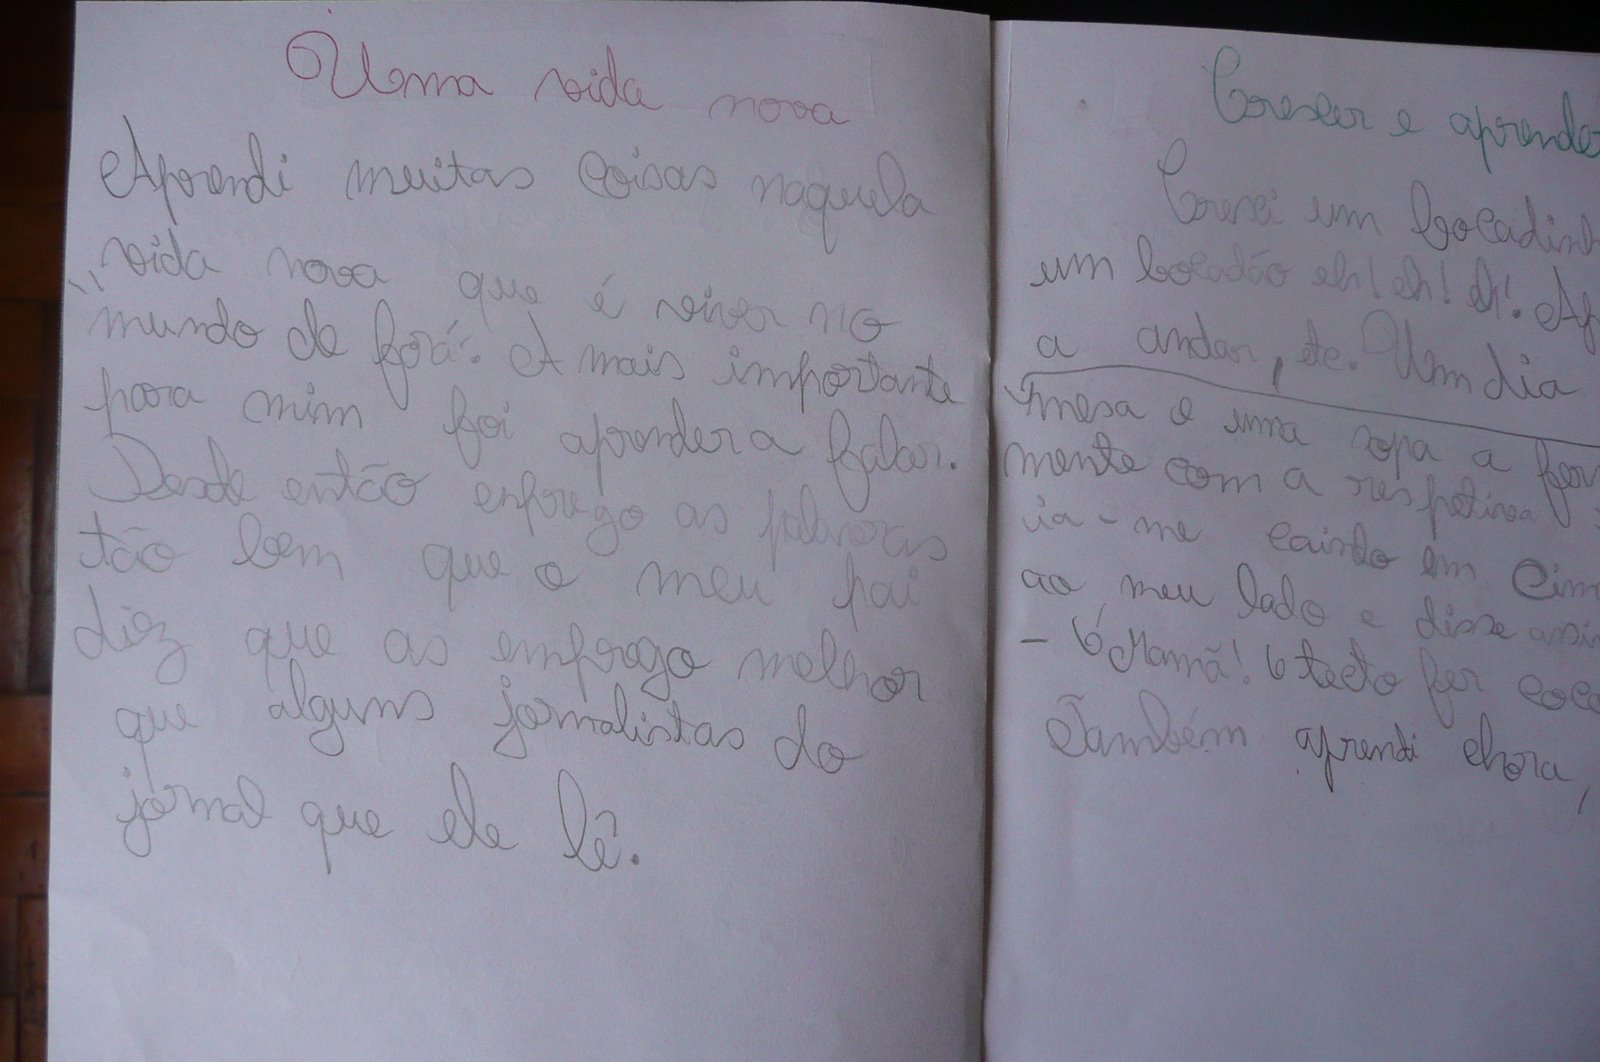 Uma vida nova
Aprendi muitas coisas naquela
vida nova que é viver no
"mundo de forá". A mais importante
para mim foi aprender a falar.
Desde então emprego as palavras
tão bem que o meu pai
diz que as emprego melhor
que alguns jornalistas do
jornal que ele lê.
Crescer e aprender
Cresci um bocadinh
um bocadão eh! eh! eh!. Ap
a andar, etc. Um dia
mesa e uma sopa a fer
mente com a respetiva
ia-me caindo em cim
ao meu lado e disse assi
- Ó Mamã! O tecto fez coco
Também aprendi chora,